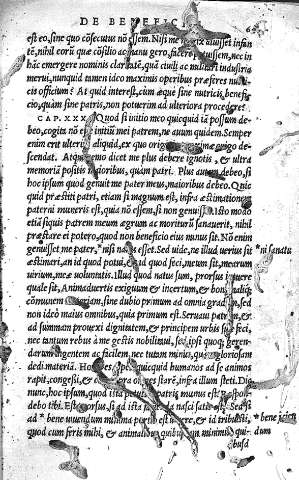 DE BENEFIC
est eo, sine quo cõsecutus nõ essem. Nisi me nutrix aluisset infan
tẽ, nihil eorũ quæ cõsilio ac manu gero, facere potuissem, nec in
hãc emergere nominis claritatẽ, quã ciuili ac militari industria
merui, nunquid tamen ideo maximis operibus præferes nutri-
cis officium? At quid interest, cum æque sine nutricis benefi-
cio, quàm sine patris, non potuerim ad ulteriora procedere?
CAP. XXX. Quod si initio meo quicquid iã possum de-
beo, cogita nõ esse initiũ mei patrem, ne auum quidem. Semper
enim erit ulterius aliquid, ex quo originis origo de-
scendat. Atqui nemo dicet me plus debere ignotis, & ultra
memoriã positis maioribus, quàm patri. Plus autem debeo, si
hoc ipsum quod genuit me pater meus, maioribus debeo. Quic
quid præstiti patri, etiam si magnum est, infra æstimationem
paterni muneris est, quia nõ essem, si non genuisset. Isto modo
etiã siquis patrem meum ægrum ac moriturũ sanauerit, nihil
præstare ei potero, quod non beneficio eius minus sit. Nõ enim
genuisset me pater, * nisi sanatus esset. Sed uide, ne illud uerius sit
æstimari, an id quod potui, & id quod feci, meum sit, mearum
uirium, meæ uoluntatis. Illud quod natus sum, prorsus intuere
quale sit. Animaduertis exiguum & incertum, & boni malique
cõmunem materiam, sine dubio primum ad omnia gradum, sed
non ideo maius omnibus, quia primum est. Seruaui patrem, &
ad summam prouexi dignitatem, & principem urbis suæ feci,
nec tantum rebus à me gestis nobilitaui, sed ipsi quoque geren-
darum ingentem ac facilem, nec tutam minus, quàm gloriosam
dedi materiã. Honores, opes, quicquid humanos ad se animos
rapit, congessi, & cum supra omnes starẽ, infra illum steti. Dic
nunc, hoc ipsum, quod ista potuisti, patris munus est? Respon-
debo tibi. Est prorsus, si ad ista facienda nasci satis est. Sed si
ad * bene uiuendum minima portio est uiuere, & id tribuisti,
quod cum feris mihi, & animalibus quibusdam minimis, qui-
busd
* ni sanatu
* bene
dum